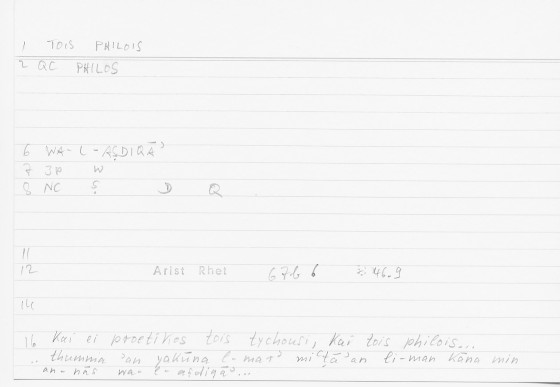 1 TOIS PHILOIS
2 QC PHILOS
6 WA-L-AṢDIQĀʾ
7 JP W
8 NC Ṣ D Q
11
12 Arist Rhet 67.6 6 = 46.9
14
16 Kai ei proetikos tois tychousi, Kai tois philois...
.. thumma ʾan yakūna l-marʾ miʿṭāʾan li-man kāna min
an-nās wa-l-aṣdiqāʾ...